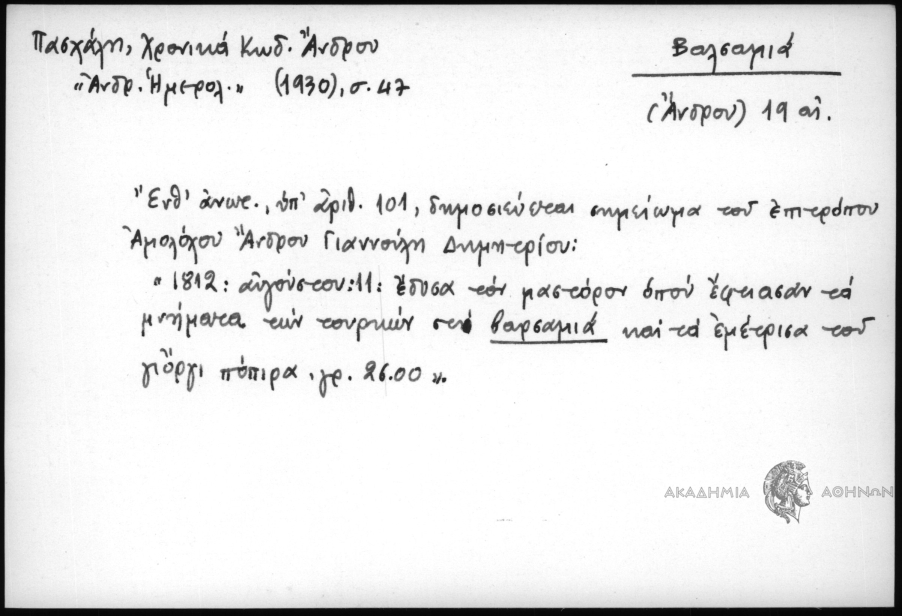 Πασχάλη, Χρονικά Κωδ. Ἄνδρου
Βαλσαμιά
«Ἀνδρ. Ἡμερολ.» (1930), σ. 47
(Ἄνδρου) 19 αἰ.
Ἔνθ' ἀνωτ., ὑπ' ἀριθ. 101, δημοσιεύεται σημείωμα τοῦ ἐπιτρόπου
Ἀμολόχου Ἄνδρου Γιαννούλη Δημητρίου:
« 1812: αὐγούστου: 11: ἔδοσα τὸν μαστόρον ὁπού ἔφτιασάν τά
μνήματα τῶν τουρκῶν στὶ βαρσαμιά καί τά ἐμέτρισα τοῦ
γιὄργι πόπιρα. γρ. 26.00 ».
ΑΚΑΔΗΜΙΑ ΑΘΗΝΩΝ